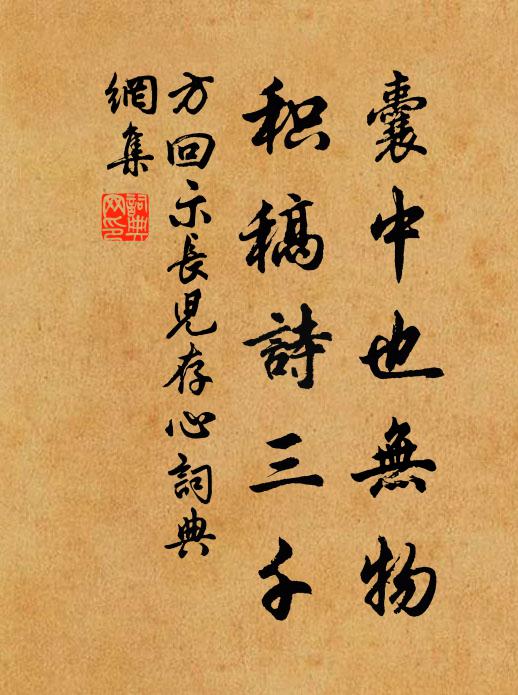 囊中也無物
积稿詩三千
方回示長兒存心詞典
網集
詞典网印